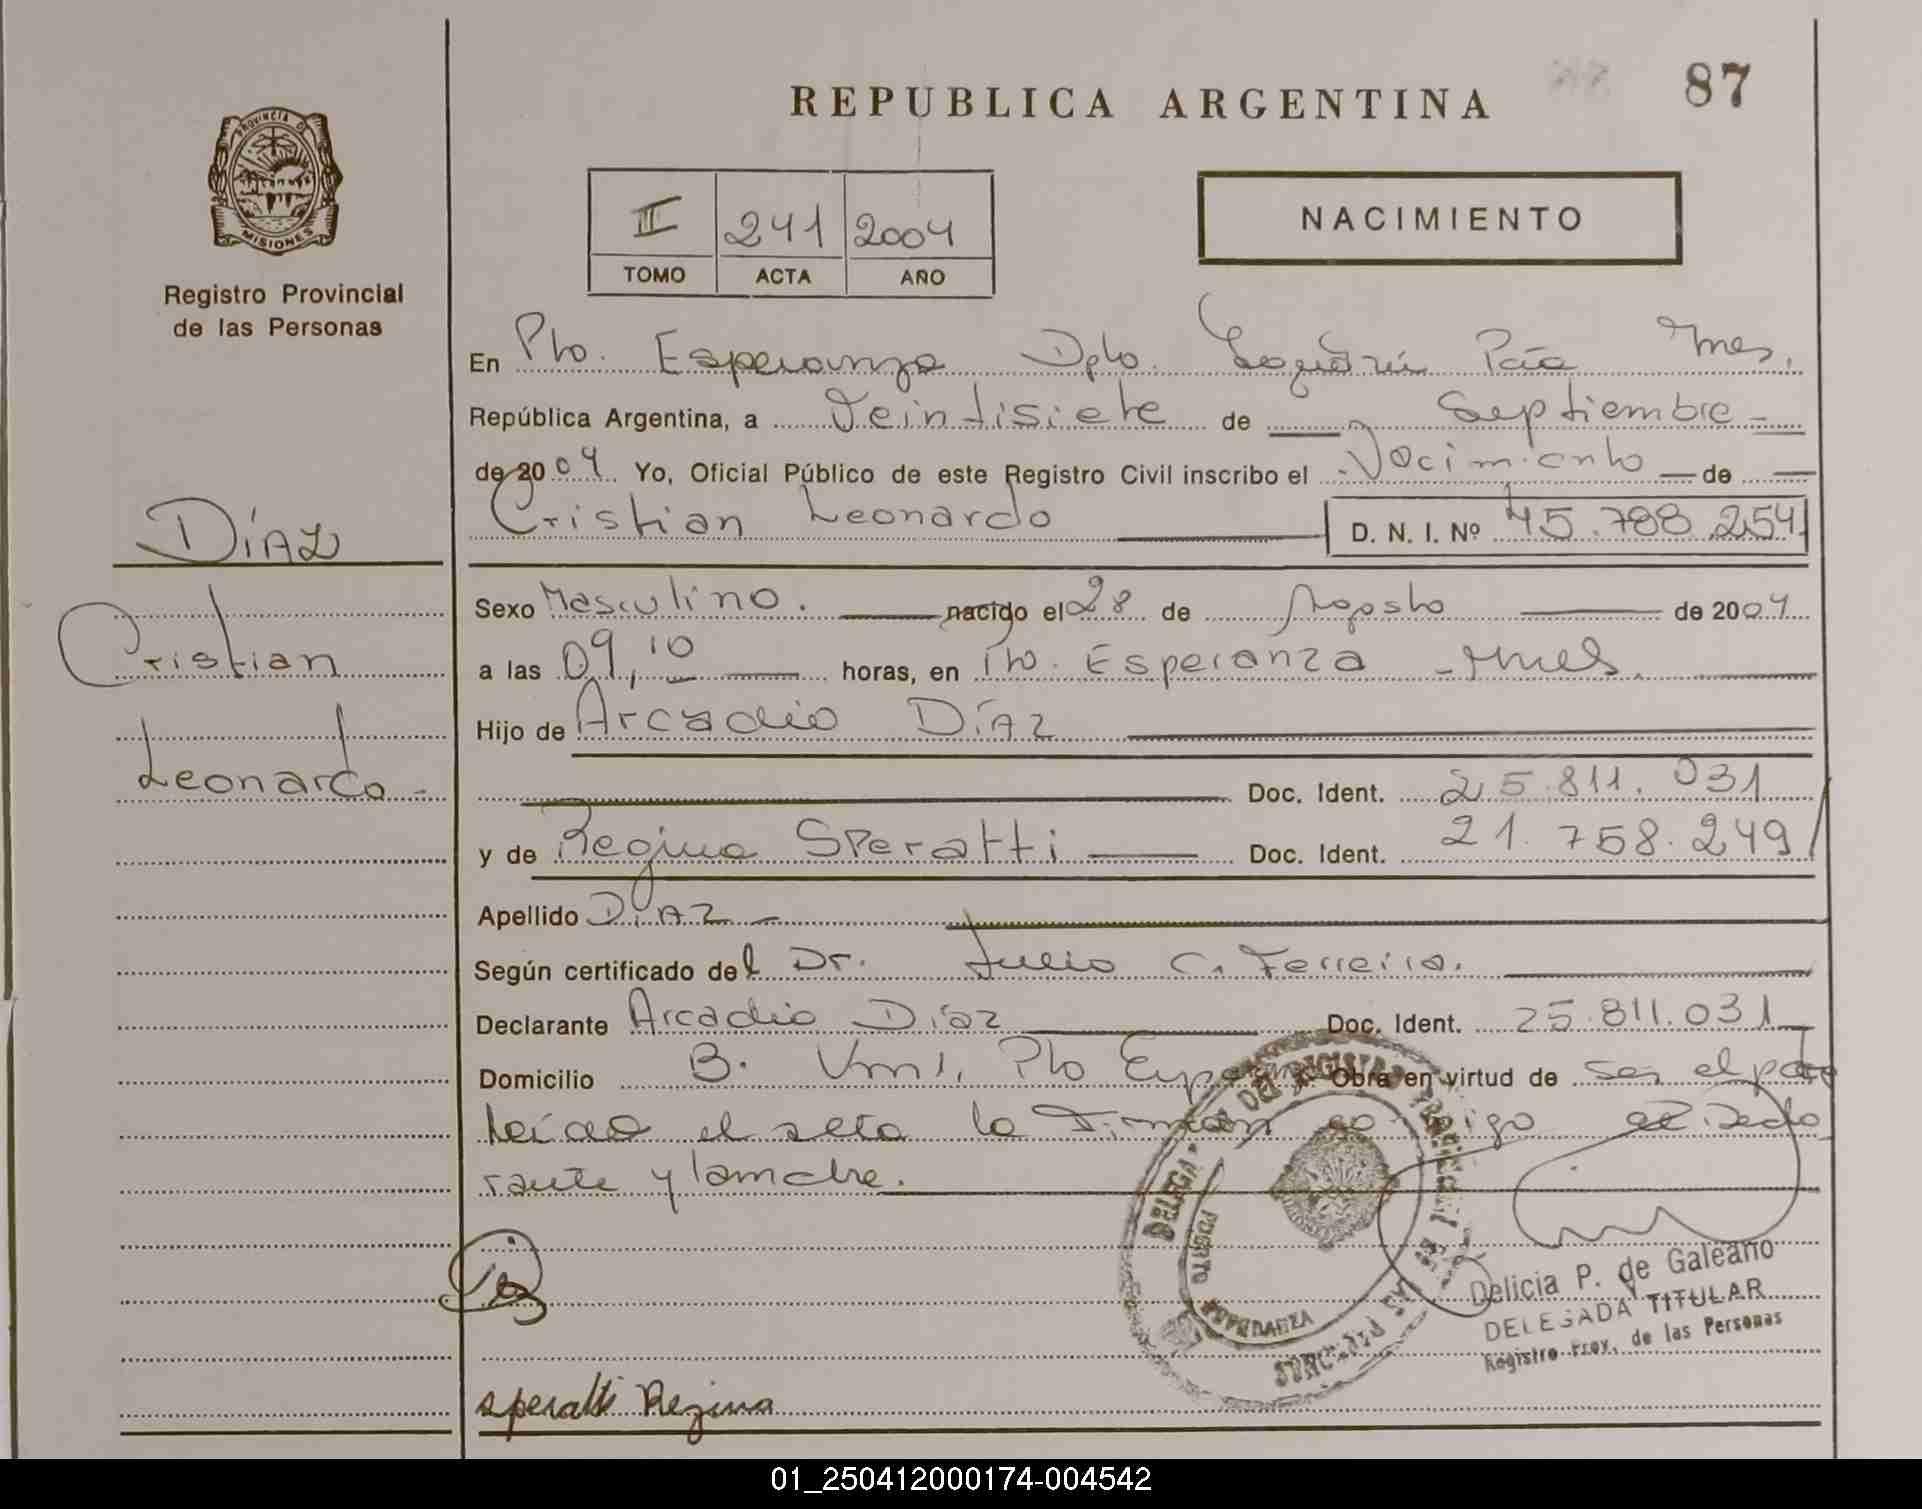 REPUBLICA ARGENTINA
87
PROVINCIA DE
MISIONES
Registro Provincial
de las Personas
II 241 2004
TOMO ACTA AÑO
NACIMIENTO
En Pto. Esperanza Dpto. Iguazú Pcia Mnes.
República Argentina, a Veintisiete de Septiembre
de 2004 Yo, Oficial Público de este Registro Civil inscribo el Nacimiento de
Cristian Leonardo D. N. I. Nº 45.788.254
Díaz
Cristian
Leonardo
Sexo Masculino. nacido el 28 de Agosto de 2004
a las 09,10 horas, en Pto. Esperanza - Mnes.
Hijo de Arcadio Díaz
Doc. Ident. 25.811.031
y de Regina Speratti Doc. Ident. 21.758.249
Apellido Díaz
Según certificado del Dr. Julio C. Ferreira.
Declarante Arcadio Díaz Doc. Ident. 25.811.031
Domicilio B. Pto Obra en virtud de ser el padre
Leída el acta la Firman conmigo el Decla
rante y la madre.
DELEGA DEL REGISTRO PROVINCIAL DE LAS PERSONAS
PUERTO ESPERANZA
Delicia P. de Galeano
DELEGADA TITULAR
Registro Prov. de las Personas
Speratti Regina
01_250412000174-004542